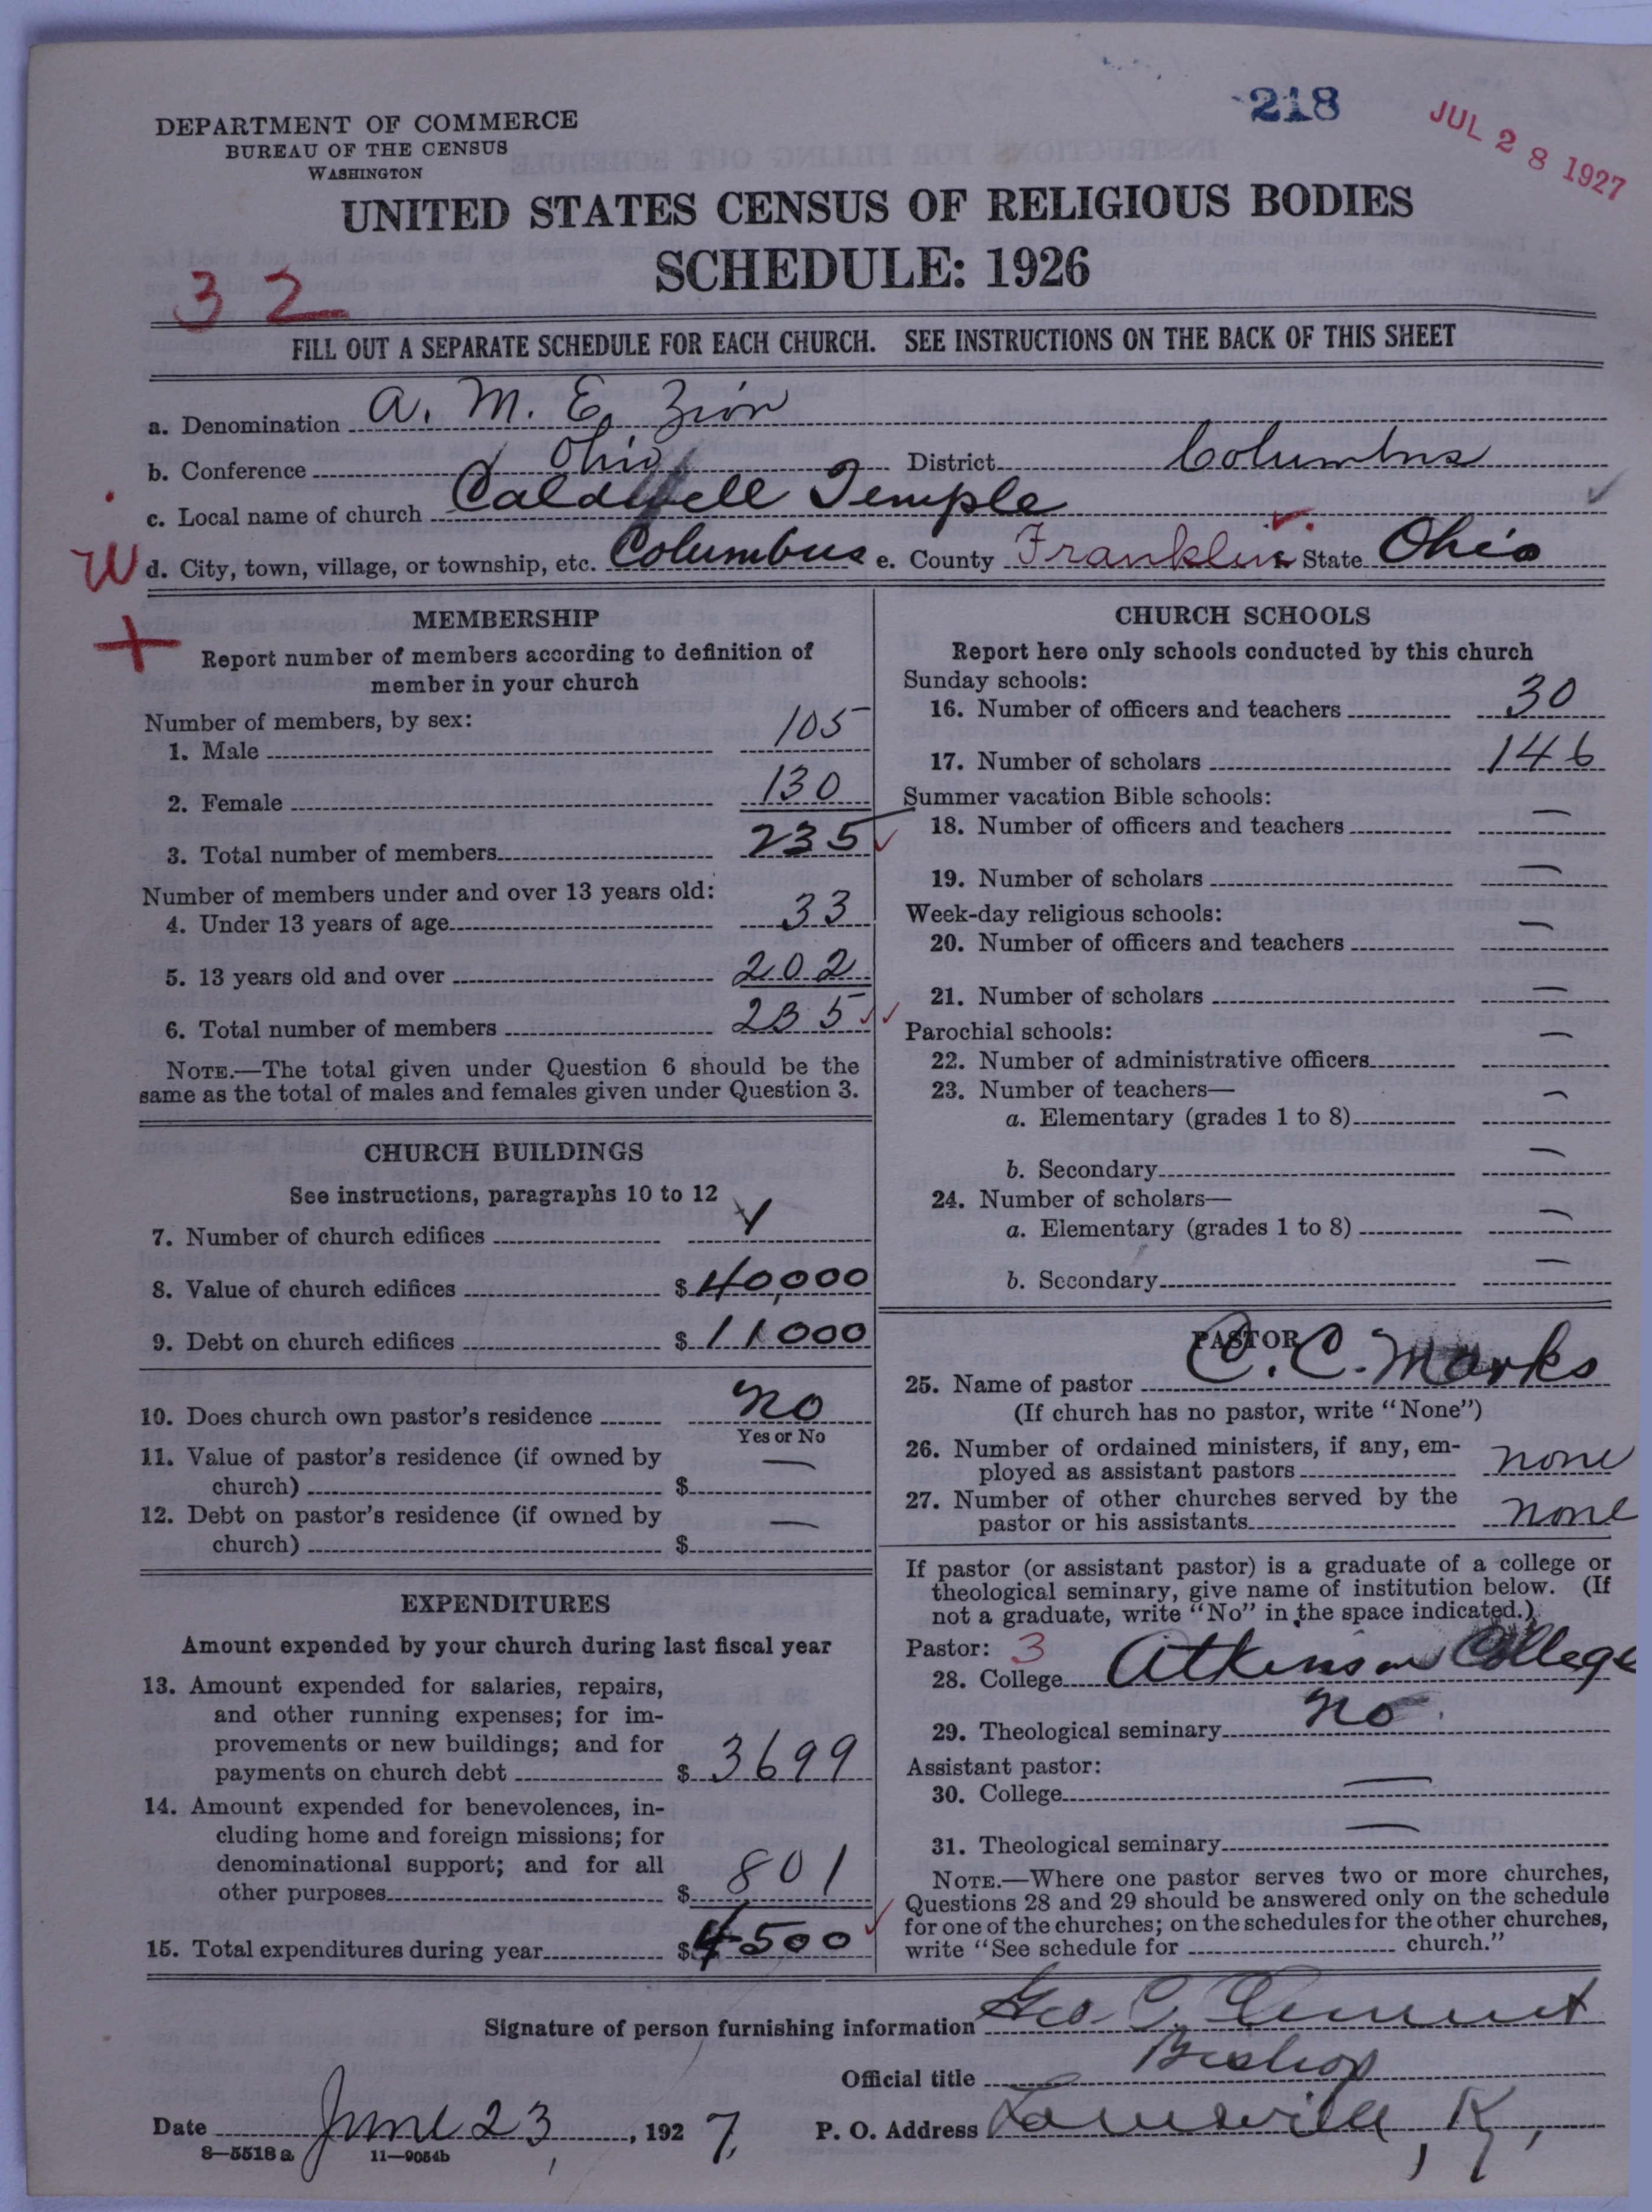 218
JUL 28 1927
DEPARTMENT OF COMMERCE
BUREAU OF THE CENSUS
WASHINGTON
UNITED STATES CENSUS OF RELIGIOUS BODIES
SCHEDULE: 1926
32
FILL OUT A SEPARATE SCHEDULE FOR EACH CHURCH. SEE INSTRUCTIONS ON THE BACK OF THIS SHEET
a. Denomination A. M. E. Zion
b. Conference Ohio District Columbus
c. Local name of church Caldwell Temple
W d. City, town, village, or township, etc. Columbus e. County Franklin State Ohio
MEMBERSHIP
Report number of members according to definition of
member in your church
Number of members, by sex:
1. Male 105
2. Female 130
3. Total number of members 235
Number of members under and over 13 years old:
4. Under 13 years of age 33
5. 13 years old and over 202
6. Total number of members 235
NOTE.—The total given under Question 6 should be the
same as the total of males and females given under Question 3.
CHURCH BUILDINGS
See instructions, paragraphs 10 to 12
7. Number of church edifices 1
8. Value of church edifices $ 40,000
9. Debt on church edifices $ 11000
10. Does church own pastor's residence No
Yes or No
11. Value of pastor's residence (if owned by
church) $ —
12. Debt on pastor's residence (if owned by
church) $ —
EXPENDITURES
Amount expended by your church during last fiscal year
13. Amount expended for salaries, repairs,
and other running expenses; for im-
provements or new buildings; and for
payments on church debt $ 3699
14. Amount expended for benevolences, in-
cluding home and foreign missions; for
denominational support; and for all
other purposes $ 801
15. Total expenditures during year $ 4500
CHURCH SCHOOLS
Report here only schools conducted by this church
Sunday schools:
16. Number of officers and teachers 30
17. Number of scholars 146
Summer vacation Bible schools:
18. Number of officers and teachers —
19. Number of scholars —
Week-day religious schools:
20. Number of officers and teachers —
21. Number of scholars —
Parochial schools:
22. Number of administrative officers —
23. Number of teachers—
a. Elementary (grades 1 to 8) —
b. Secondary —
24. Number of scholars—
a. Elementary (grades 1 to 8) —
b. Secondary —
PASTOR
25. Name of pastor C. C. Marks
(If church has no pastor, write "None")
26. Number of ordained ministers, if any, em-
ployed as assistant pastors none
27. Number of other churches served by the
pastor or his assistants none
If pastor (or assistant pastor) is a graduate of a college or
theological seminary, give name of institution below. (If
not a graduate, write "No" in the space indicated.)
Pastor: 3
28. College Atkinson College
29. Theological seminary No
Assistant pastor:
30. College —
31. Theological seminary —
NOTE.—Where one pastor serves two or more churches,
Questions 28 and 29 should be answered only on the schedule
for one of the churches; on the schedules for the other churches,
write "See schedule for church."
Signature of person furnishing information Geo. C. Clement
Official title Bishop
Date June 23, 1927, P. O. Address Louisville, Ky,
8—5518 a 11—9054b